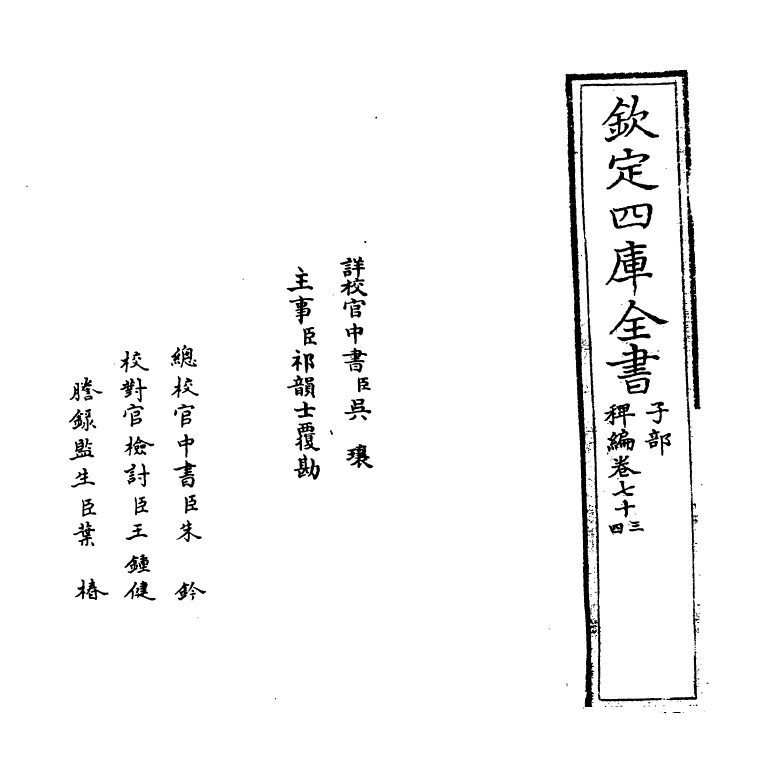 欽定四庫全書
子部
稗編卷七十三
四
詳校官中書臣吳瓌
主事臣祁韻士覆勘
總校官中書臣朱鈐
校對官檢討臣王鍾健
謄錄監生臣葉椿